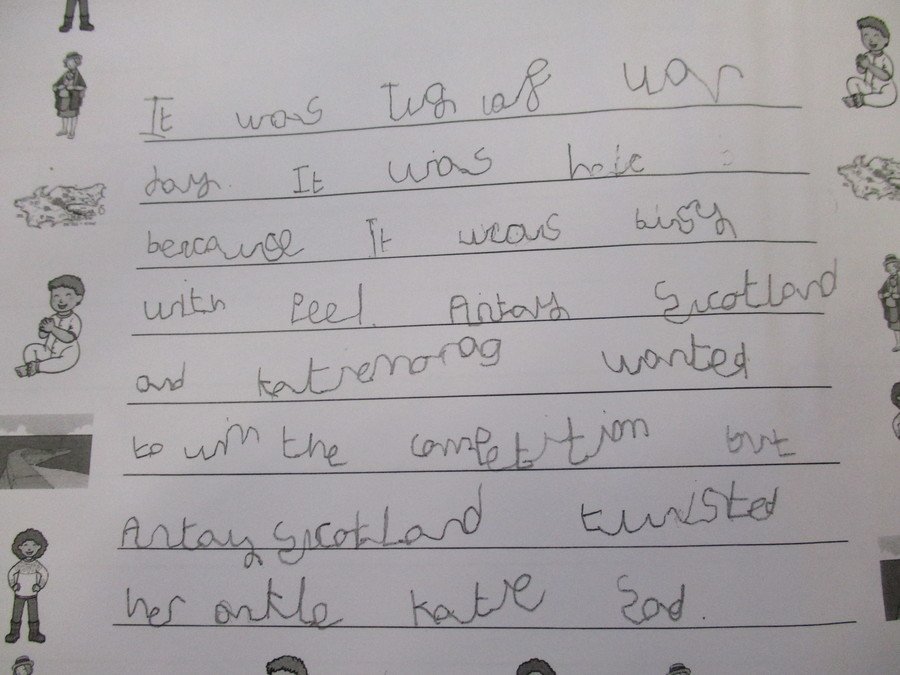 It was Tug of war
day. It was hetc
becauge It wcas bisy
with Peel. Antay Scotland
and katiemorag wanted
to win the competition but
Antay Scotland twisted
her ankle katie Sad.